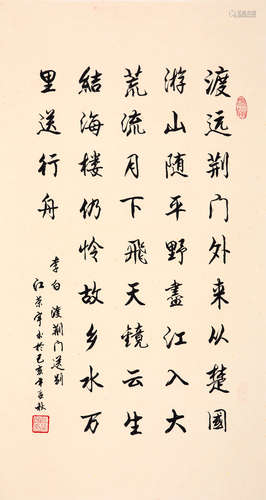 渡远荆门外来从楚國
游山随平野盡江入大
荒流月下飛天镜云生
結海楼仍怜故乡水万
里送行舟
李白 渡荆门送别
江 宇书於己亥年 秋